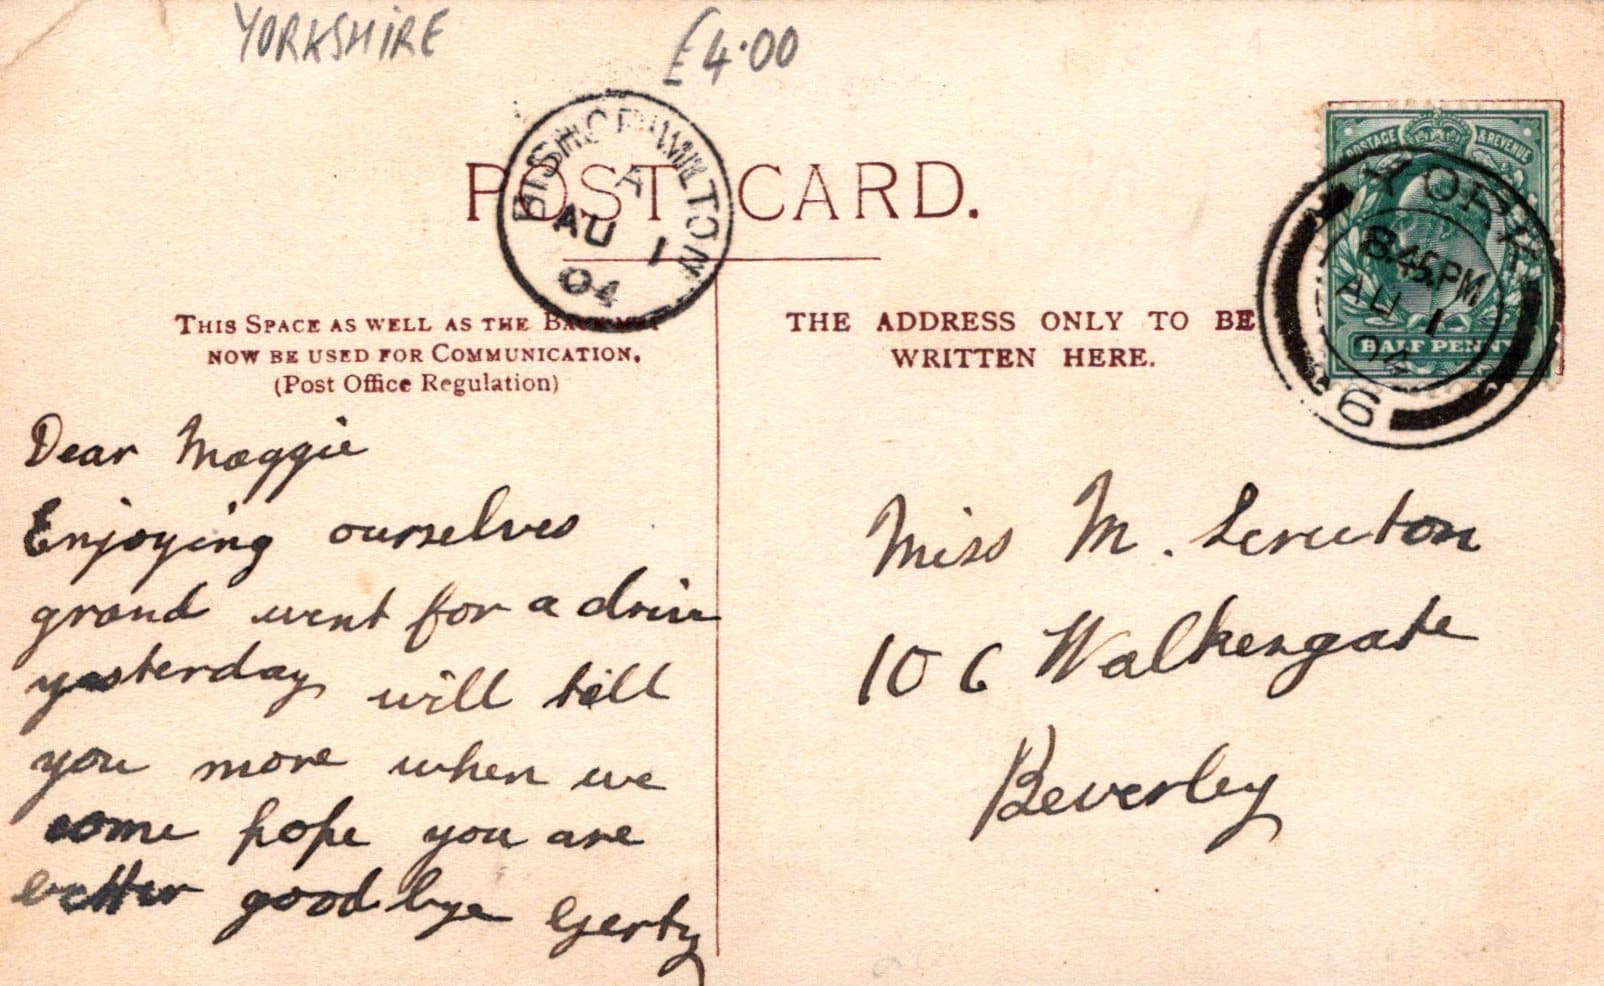 YORKSHIRE
£4.00
POST CARD.
BISHOP WILTON
A
AU 1
04
POSTAGE & REVENUE
YORK
8.45.PM
AU 1
04
HALF PENNY
6
THIS SPACE AS WELL AS THE BACK MAY
NOW BE USED FOR COMMUNICATION.
(Post Office Regulation)
THE ADDRESS ONLY TO BE
WRITTEN HERE.
Dear Maggie
Enjoying ourselves
grand went for a drive
yesterday will tell
you more when we
come hope you are
better good bye Gerty
Miss M. Scruton
106 Walkergate
Beverley